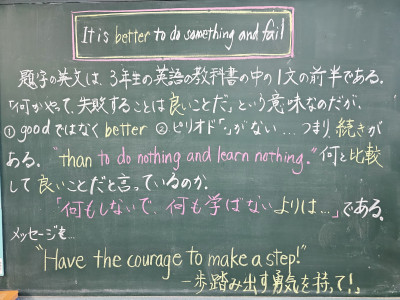 It is better to do something and fail
題字の英文は、3年生の英語の教科書の中の1文の前半である。
「何かやって、失敗することは良いことだ」という意味なのだが、
①goodではなくbetter ②ピリオド「.」がない…つまり、続きが
ある。"than to do nothing and learn nothing."何と比較
して良いことだと言っているのか。
「何もしないで、何も学ばないよりは…」である。
メッセージを…
"Have the courage to make a step!"
一歩踏み出す勇気を持て!」